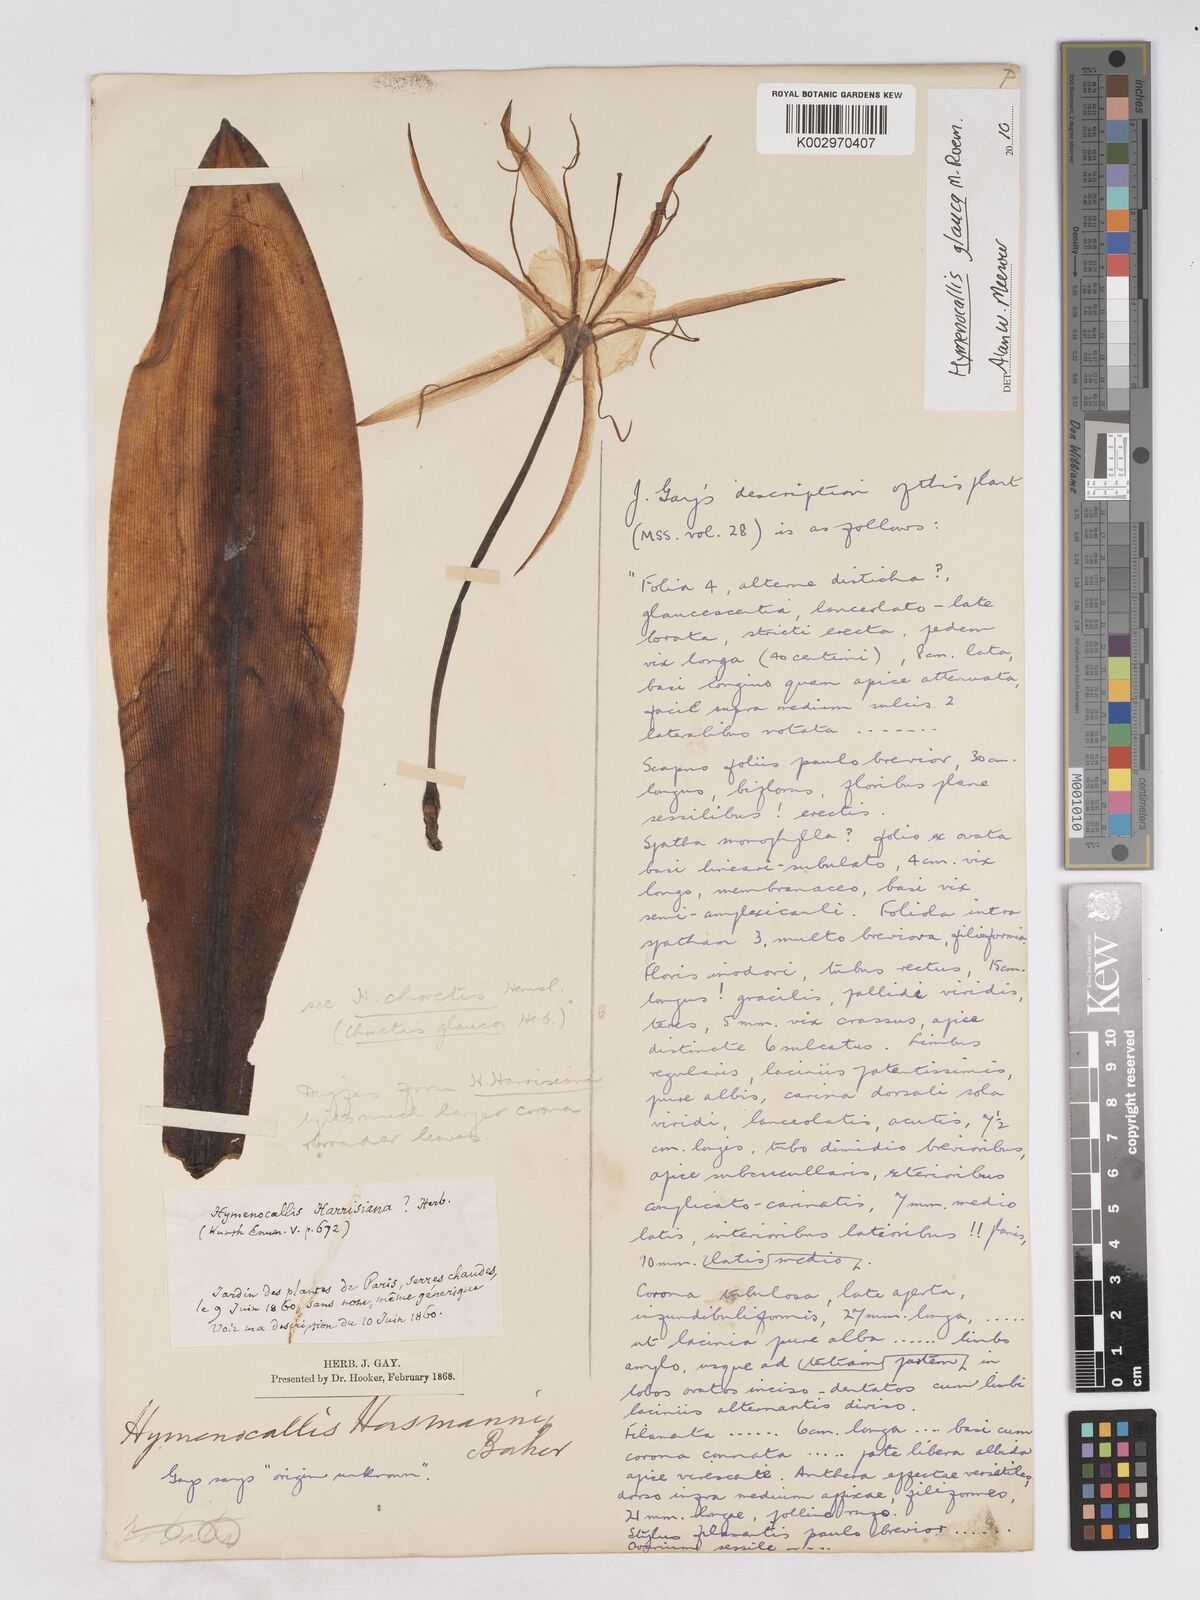 ROYAL BOTANIC GARDENS KEW
K002970407
Hymenocallis glauca M. Roem.
DET. Alan W. Meerow 20 10
J. Gay's description of this plant
(MSS. vol. 28) is as follows:
"Folia 4, alterne disticha?,
glaucescentia, lanceolato-late
lorata, stricti erecta, pedem
vix longa (40 centim), 8cm. lata,
basi longius quam apice attenuata,
facie supra medium sulcis 2
lateralibus notata .......
Scapus foliis paulo brevior, 30 cm.
longus, biflorus, floribus plane
sessilibus! erectis.
Spatha monophylla? folio ex ovata
basi lineari-subulato, 4 cm. vix
longo, membranaceo, basi vix
semi-amplexicauli. Foliola intra
spatham 3, multo breviora, filiformia.
Floris inodori, tubus rectus, 15cm.
longus! gracilis, pallide viridis,
teres, 5 mm. vix crassus, apice
distincte 6 sulcatus. Limbus
regularis, laciniis patentissimis,
pure albis, carina dorsali sola
viridi, lanceolatis, acutis, 7½
cm. longis, tubo dimidio brevioribus,
apice subcucullaris, exterioribus
conplicato-carinatis, 7 mm. medio
latis, interioribus latioribus!! planis,
10 mm. latis medio.
Corona tubulosa, late aperta,
infundibuliformis, 27 mm. longa, .....
ut lacinia pure alba ...... limbo
amplo, usque ad tertiam partem in
lobos ovatos inciso-dentatos cum limbi
laciniis alternantis diviso.
Filamenta ...... 6cm. longa .... basi cum
corona connata ..... parte libera albida
apice virescente. Anthera effectae versatiles,
dorso infra medium affixae, filiformes,
21 mm. longae, polline rufo.
Stylus filamentis paulo brevior ......
Ovarium sessile .....
see H. choretis Hemsl.
(Choretis glauca Herb.)
Differs from H. Harrisiana
by its much larger corona
broader leaves.
Hymenocallis Harrisiana? Herb.
(Kunth Enum. V. p. 672)
Jardin des plantes de Paris, serres chaudes,
le 9 Juin 1860, sans nom, même générique
Voiz ma description du 10 Juin 1860.
HERB. J. GAY.
Presented by Dr. Hooker, February 1868.
Hymenocallis Horsmanni
Baker
Gay says "origin unknown".
inches
Density
Don Williams
M001010
centimeters
Kew
0 1 2 3 4 5 6 7 8 9 10
cm
copyright reserved